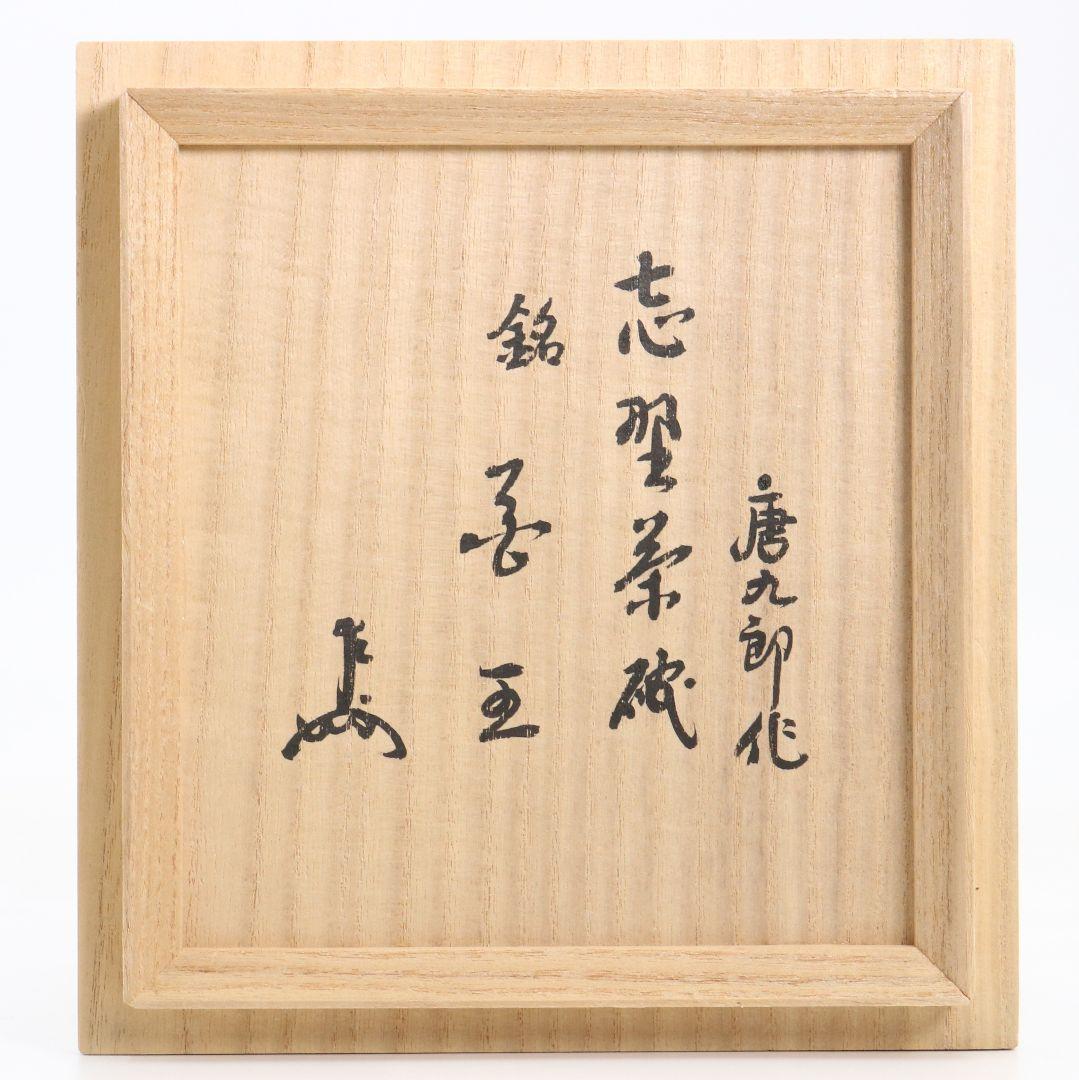 唐九郎作
志野茶碗
銘 王